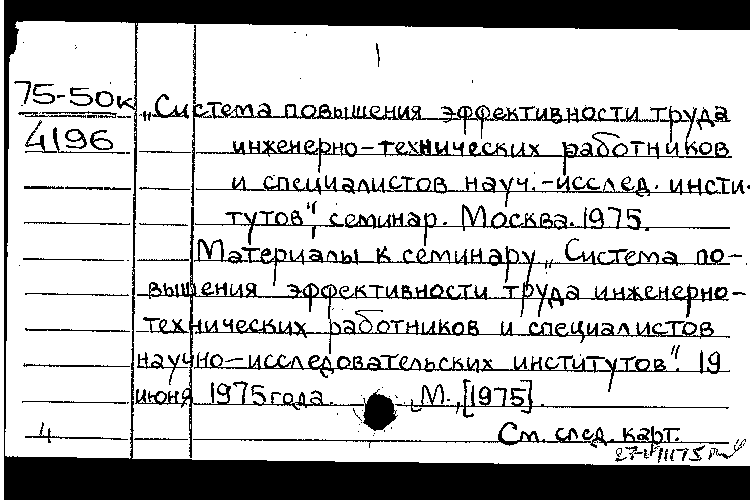 75-50к
4196
„Система повышения эффективности труда
инженерно-технических работников
и специалистов науч.-исслед. инсти-
тутов", семинар. Москва. 1975.
Материалы к семинару „Система по-
вышения эффективности труда инженерно-
технических работников и специалистов
научно-исследовательских институтов". 19
июня 1975 года. М., [1975].
4
См. след. карт.